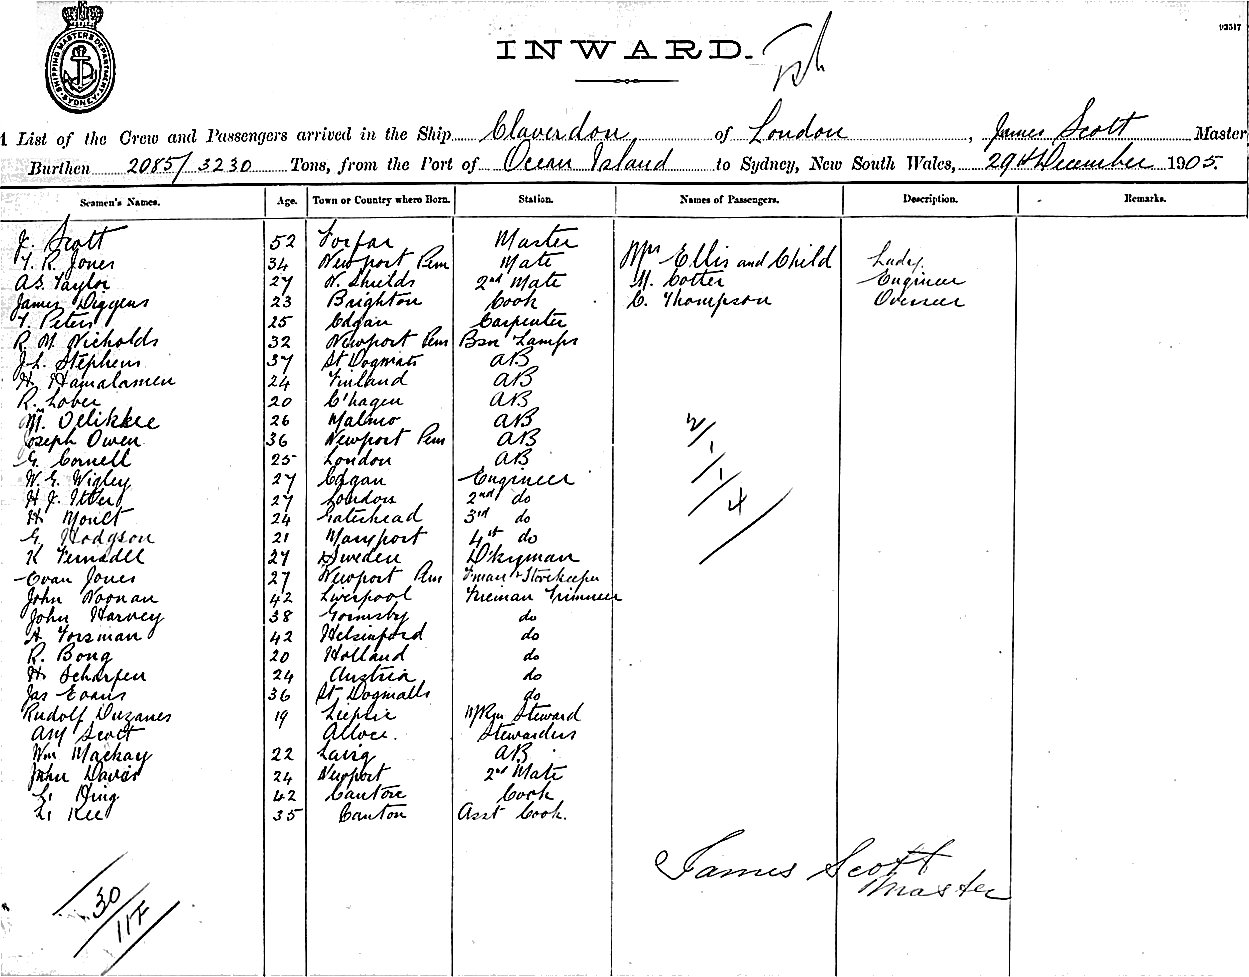 SHIPPING MASTERS DEPARTMENT SYDNEY
93517
INWARD.
A List of the Crew and Passengers arrived in the Ship Claverdon, of London, James Scott Master
Burthen 2085/3230 Tons, from the Port of Ocean Island to Sydney, New South Wales, 29th December 1905.
Seamen's Names. Age. Town or Country where Born. Station. Names of Passengers. Description. Remarks.
J. Scott 52 Forfar Master
T. R. Jones 34 Newport Mate Mrs Ellis and Child Lady
A. S. Taylor 27 N. Shields 2nd Mate M. Cotter Engineer
James Diggens 23 Brighton Cook C. Thompson Overseer
T. Peters 25 Carpenter
R. M. Nicholds 32 Newport Bsn Lamps
J. L. Stephens 37 St Dogmats AB
H. Hamalamen 24 Finland AB
R. Lober 20 C'hagen AB
M. 26 Malmo AB
Joseph Owen 36 Newport AB
G. Cornell 25 London AB
W. G. Wigley 27 Engineer
H. J. 27 London 2nd do
H Moult 24 Gateshead 3rd do
G. Hodgson 21 Maryport 4th do
K 27 Sweden Dkyman
Evan Jones 27 Newport Fman & Storekeeper
John Noonan 42 Liverpool Fireman Trimmer
John Harvey 38 Gormsby do
A. Forsman 42 Helsinford do
R. Bong 20 Holland do
H. Scharfen 24 Austria do
Jas Evans 36 St Dogmalls do
Rudolf 19 Steward
Scott Stewardess
Wm Mackay 22 Lairg AB
John Davis 24 Newport 2nd Mate
42 Canton Cook
35 Canton Asst Cook.
2/1/1/4
James Scott
Master
30/11F